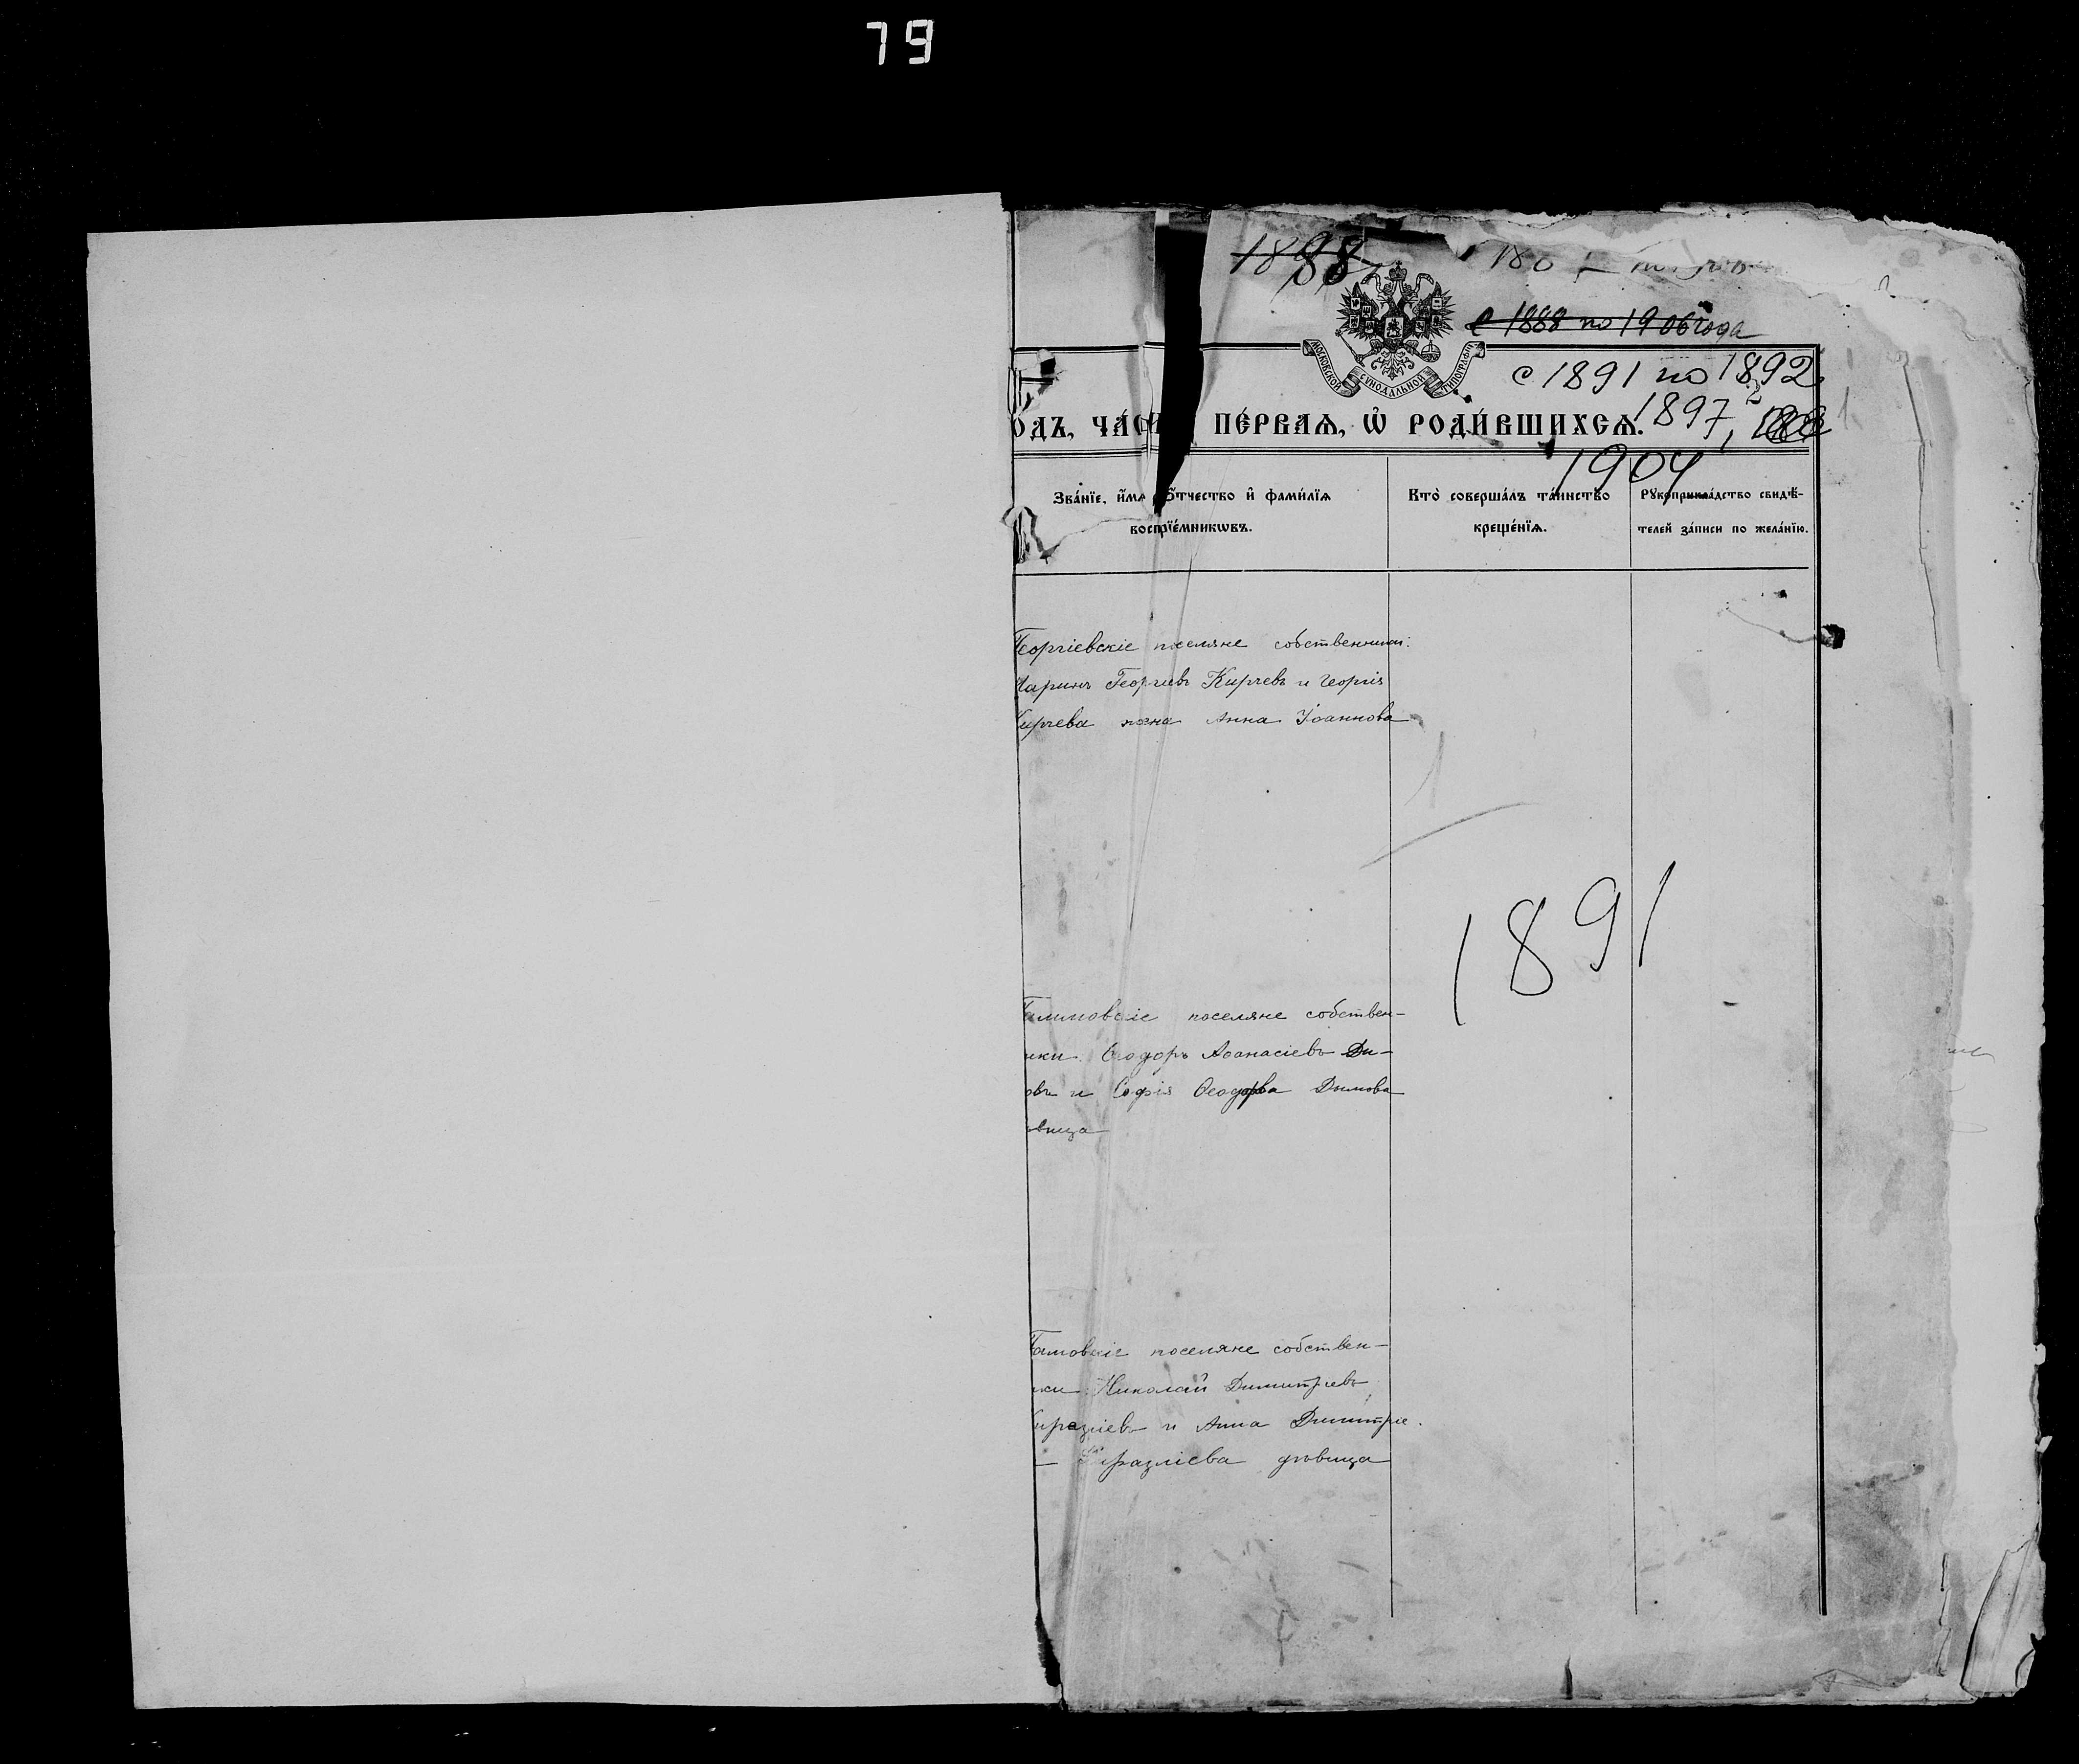 79
1888
с 1888 по 1906 года
МОСКОВСКОЙ СѴНОДАЛЬНОЙ ТИПОГРАФІИ
с 1891 по 1892,
1897,
1904
ОДЪ, ЧА́СТЬ ПЕ́РВАѦ, Ѡ҆ РОДИ́ВШИХСѦ.
Зва́нїе, и҆́мѧ ѻ҆́тчество и҆ фами́лїѧ
воспрїе́мникѡвъ.
Кто̀ соверша́лъ та́инство
креще́нїѧ.
Рꙋкоприкла́дство свидѣ́-
телей за́писи по жела́нїю.
Георгіевскіе поселяне собственники:
Маринъ Георгіевъ Кирчевъ и Георгія
Кирчева жена Анна Іоаннова
1891
поселяне собствен-
ники Ѳеодоръ Аѳанасіевъ Ди-
овъ и Софія Ѳеодорва Димова
вица
поселяне собствен-
ки Николай Димитріевъ
и Анна Димитріе
дѣвица